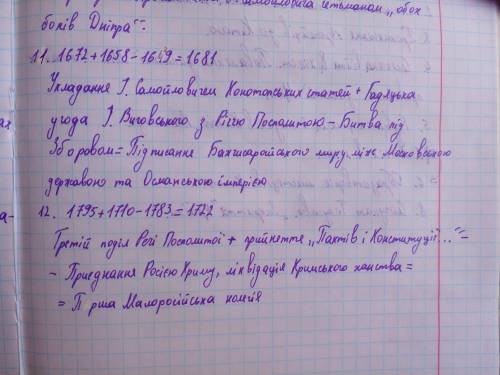 гетьманом „обох
боків Дніпра".
11. 1672 + 1658 - 1649 = 1681
Укладання І. Самойловичем Конотопських статей + Гадяцька
угода І. Виговського з Річчю Посполитою - Битва під
Зборовом = Підписання Бахчисарайського миру між Московською
державою та Османською імперією
12. 1795 + 1710 - 1783 = 1722
Третій поділ Речі Посполитої + прийняття „Пактів і Конституції..." -
- Приєднання Росією Криму, ліквідація Кримського ханства =
= Перша Малоросійська колегія